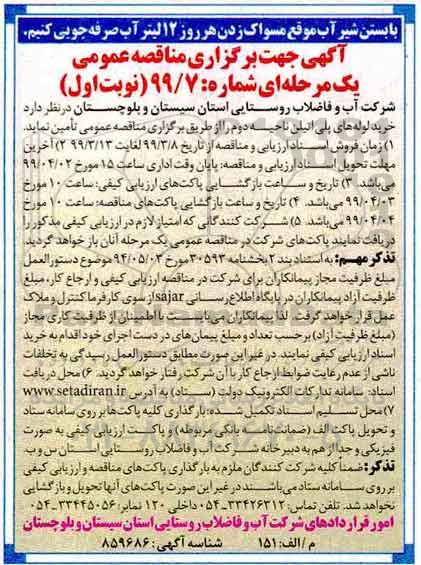 با بستن شیر آب موقع مسواک زدن هر روز ۱۲ لیتر آب صرفه جویی کنیم.
آگهی جهت برگزاری مناقصه عمومی
یک مرحله‌ای شماره: ۹۹/۷ (نوبت اول)
شرکت آب و فاضلاب روستایی استان سیستان و بلوچستان در نظر دارد
خرید لوله‌های پلی اتیلن ناحیه دوم را از طریق برگزاری مناقصه عمومی تأمین نماید.
۱) زمان فروش اسناد ارزیابی و مناقصه از تاریخ ۹۹/۳/۸ لغایت ۹۹/۳/۱۳ ۲) آخرین
مهلت تحویل اسناد ارزیابی و مناقصه: پایان وقت اداری ساعت ۱۵ مورخ ۹۹/۰۴/۰۲
می‌باشد. ۳) تاریخ و ساعت بازگشایی پاکت‌های ارزیابی کیفی: ساعت ۱۰ مورخ
۹۹/۰۴/۰۳ می‌باشد. ۴) تاریخ و ساعت بازگشایی پاکت‌های مناقصه: ساعت ۱۰ مورخ
۹۹/۰۴/۰۴ می‌باشد. ۵) شرکت کنندگانی که امتیاز لازم در ارزیابی کیفی مذکور را
دریافت نمایند پاکت‌های شرکت در مناقصه عمومی یک مرحله آنان باز خواهد گردید.
تذکر مهم: به استناد بند ۲ بخشنامه ۳۰۵۹۳ مورخ ۹۴/۰۵/۰۳ موضوع دستورالعمل
مبلغ ظرفیت مجاز پیمانکاران برای شرکت در مناقصه ارزیابی کیفی و ارجاع کار، مبلغ
ظرفیت آزاد پیمانکاران در پایگاه اطلاع رسانی sajar از سوی کارفرما کنترل و ملاک
عمل قرار خواهد گرفت. لذا پیمانکاران می‌بایست با اطمینان از ظرفیت کاری مجاز
(مبلغ ظرفیت آزاد) برحسب تعداد و مبلغ پیمان‌های در دست اجرای خود اقدام به خرید
اسناد ارزیابی کیفی نمایند. در غیر این صورت مطابق دستورالعمل رسیدگی به تخلفات
ناشی از عدم رعایت ضوابط ارجاع کار با آن شرکت رفتار خواهد گردید. ۶) محل دریافت
اسناد: سامانه تدارکات الکترونیک دولت (ستاد) به آدرس www.setadiran.ir
۷) محل تسلیم اسناد تکمیل شده: بارگذاری کلیه پاکت‌ها بر روی سامانه ستاد
و تحویل پاکت الف (ضمانتنامه بانکی مربوطه) و پاکت ارزیابی کیفی به صورت
فیزیکی و جدا از هم به دبیرخانه شرکت آب و فاضلاب روستایی استان س و ب
تذکر: ضمناً کلیه شرکت کنندگان ملزم به بارگذاری پاکت‌های مناقصه و ارزیابی کیفی
بر روی سامانه ستاد می‌باشند در غیر این صورت پاکت‌های آنها تحویل و بازگشایی
نخواهد شد. تلفن تماس: ۳۳۴۲۶۳۱۲–۰۵۴ داخلی ۱۲۰ نمابر: ۳۳۴۴۵۰۵۶–۰۵۴
امور قراردادهای شرکت آب و فاضلاب روستایی استان سیستان و بلوچستان
م / الف: ۱۵۱ شناسه آگهی: ۸۵۹۶۸۶